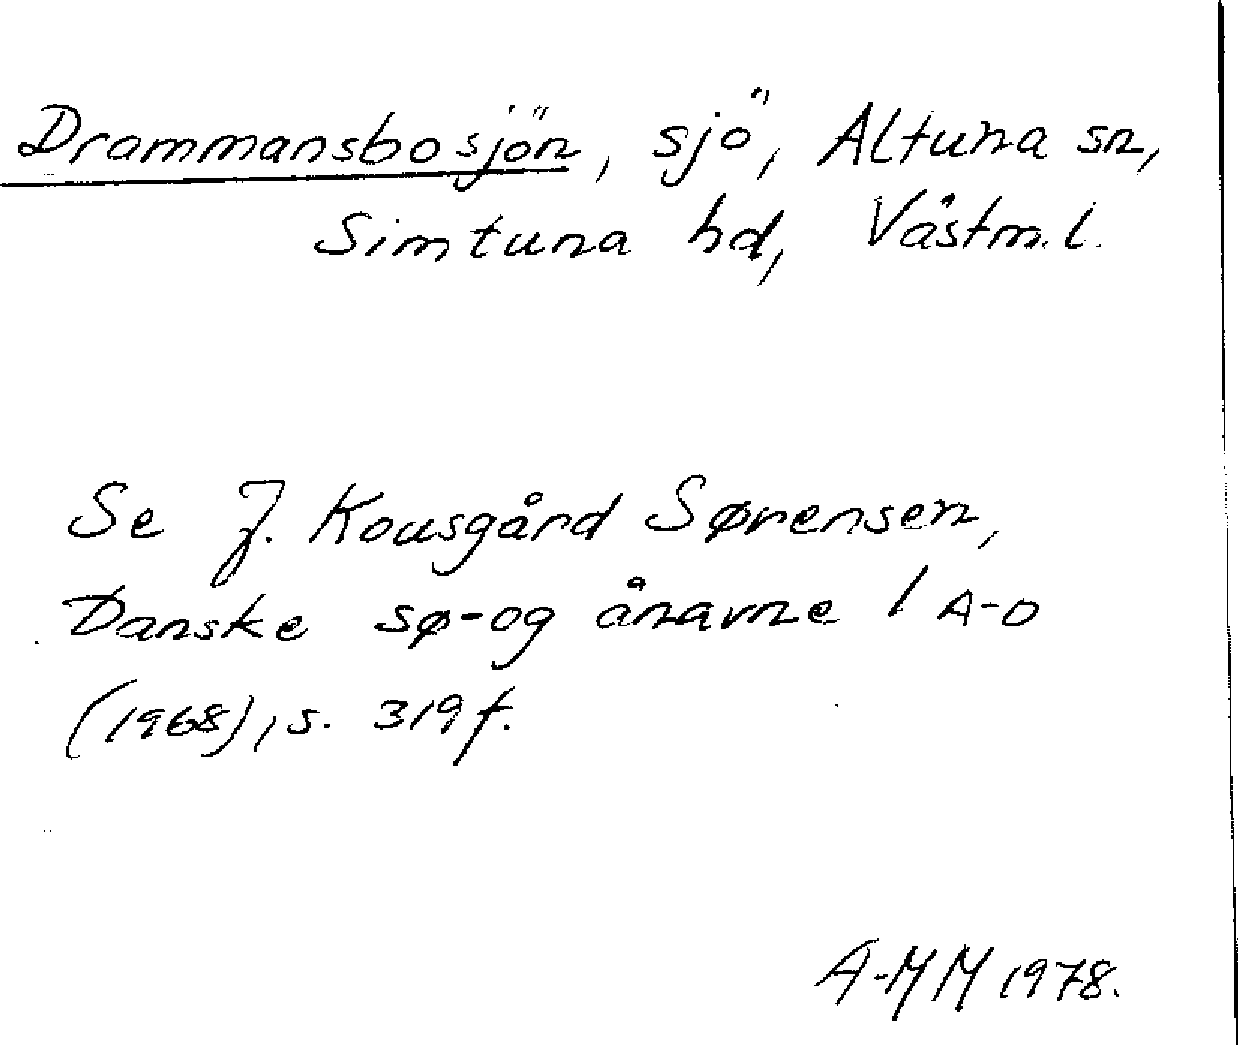 Drammansbosjön, sjö, Altuna sn,
Simtuna hd, Västm. l.
Se J. Kousgård Sørensen,
Danske sø- og ånavne 1 A-D
(1968), s. 319 f.
A-MM 1978.